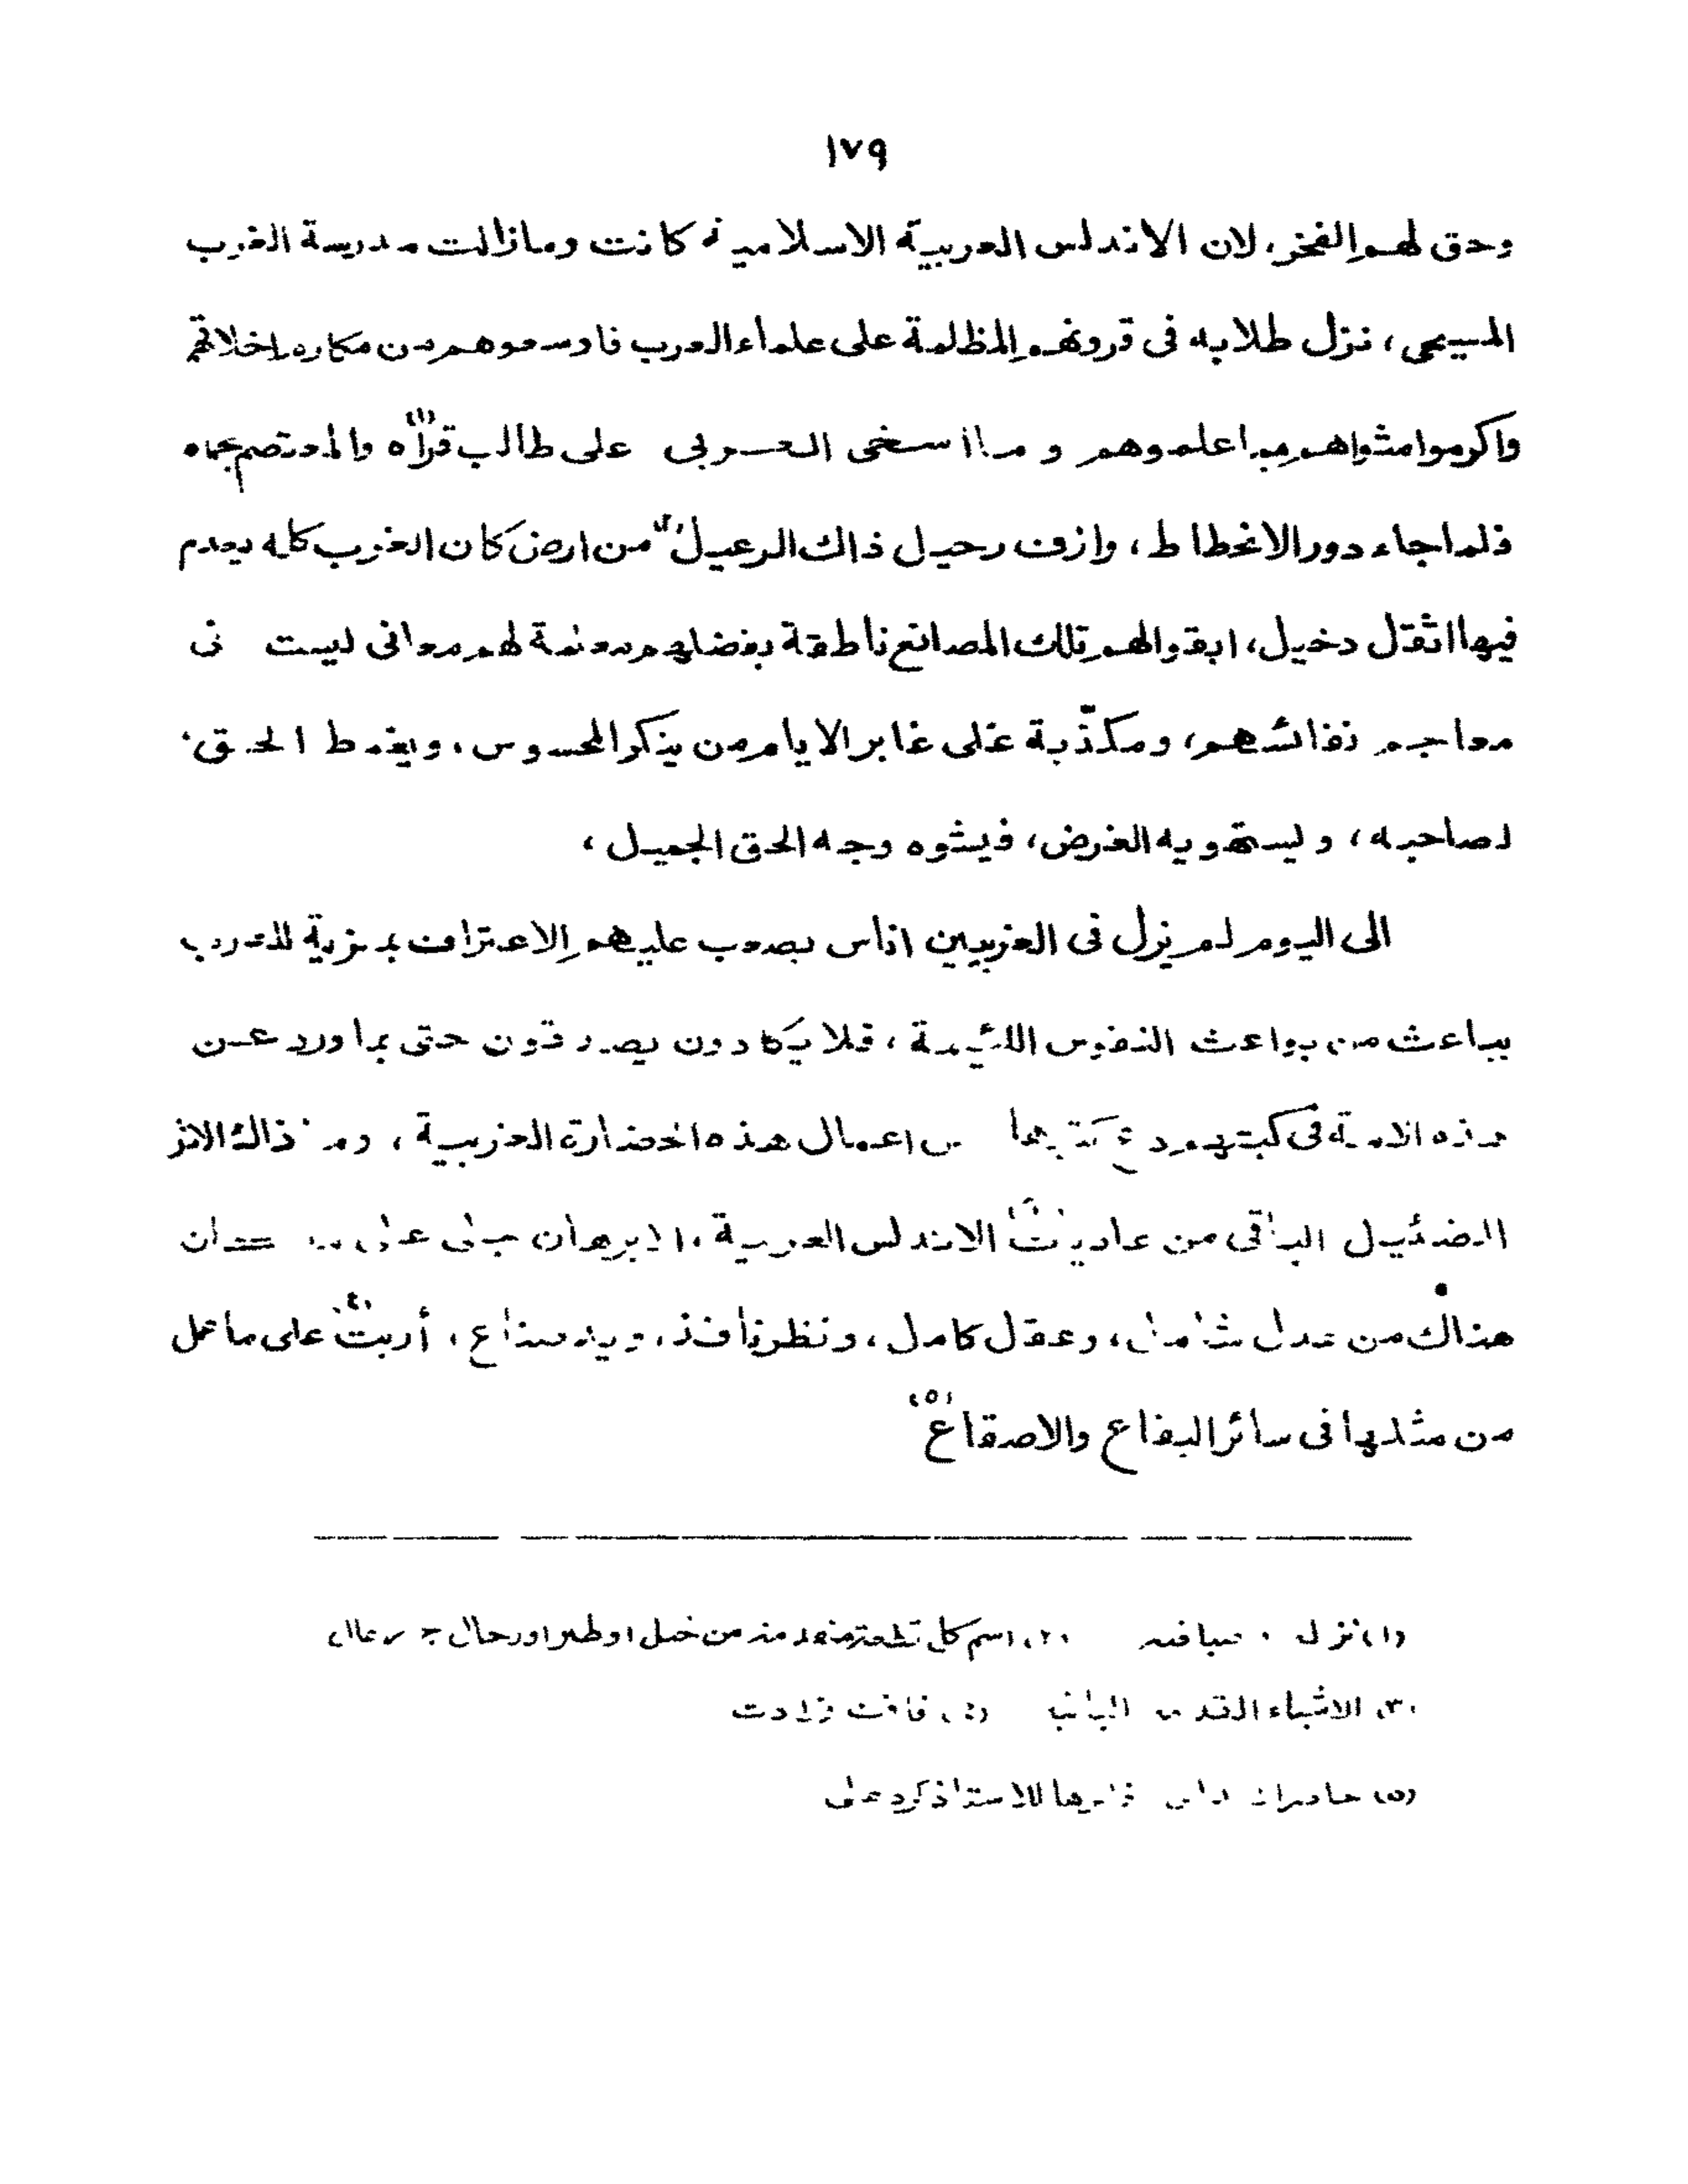 ١٧٩
وحق لهم الفخر، لان الاندلس العربية الاسلامية كانت ومازالت مدرسة الغرب
المسيحى، نزل طلابه فى قرونهم المظلمة على علماء العرب فاوسعوهم من مكارم اخلاقهم
واكرموا مثواهم بما علموهم و ما اسخى العربى على طالب قراه (١) والمعتصم بحماه
فلما جاء دور الانحطاط، وازف رحيل ذاك الرعيل (٢) من ارض كان الغرب كله يعدم
فيها اثقل دخيل، ابقوا لهم تلك المصانع ناطقة بفضلهم معلمة لهم معانى ليست فى
معاجم نفائسهم، ومكذّبة على غابر الايام من ينكر المحسوس، ويغمط الحق
لصاحبه، وليستهويه الغرض، فيشوه وجه الحق الجميل،
الى اليوم لم يزل فى الغربيين اناس يصعب عليهم الاعتراف بمزية للعرب
بباعث من بواعث النفوس اللئيمة، فلا يكادون يصدقون حتى بما ورد عن
هذه الامة فى كتبهم اعمال هذه الحضارة الغربية، وما ذاك الاثر
الضئيل الباقى من عاديات (٣) الاندلس العربية، الا برهان جلى على كان
هناك من عدل شامل، وعقل كامل، ونظر نافذ، ويد صناع، أربت (٤) على ما عمل
من مثلها فى سائر البقاع والاصقاع (٥)
(١) نزل ضيافة (٢) اسم كل قطعة متقدمة من خيل او طير او رجال ج رعال
(٣) الاشياء القديمة (٤) فاقت زادت
(٥) للاستاذ كرد على